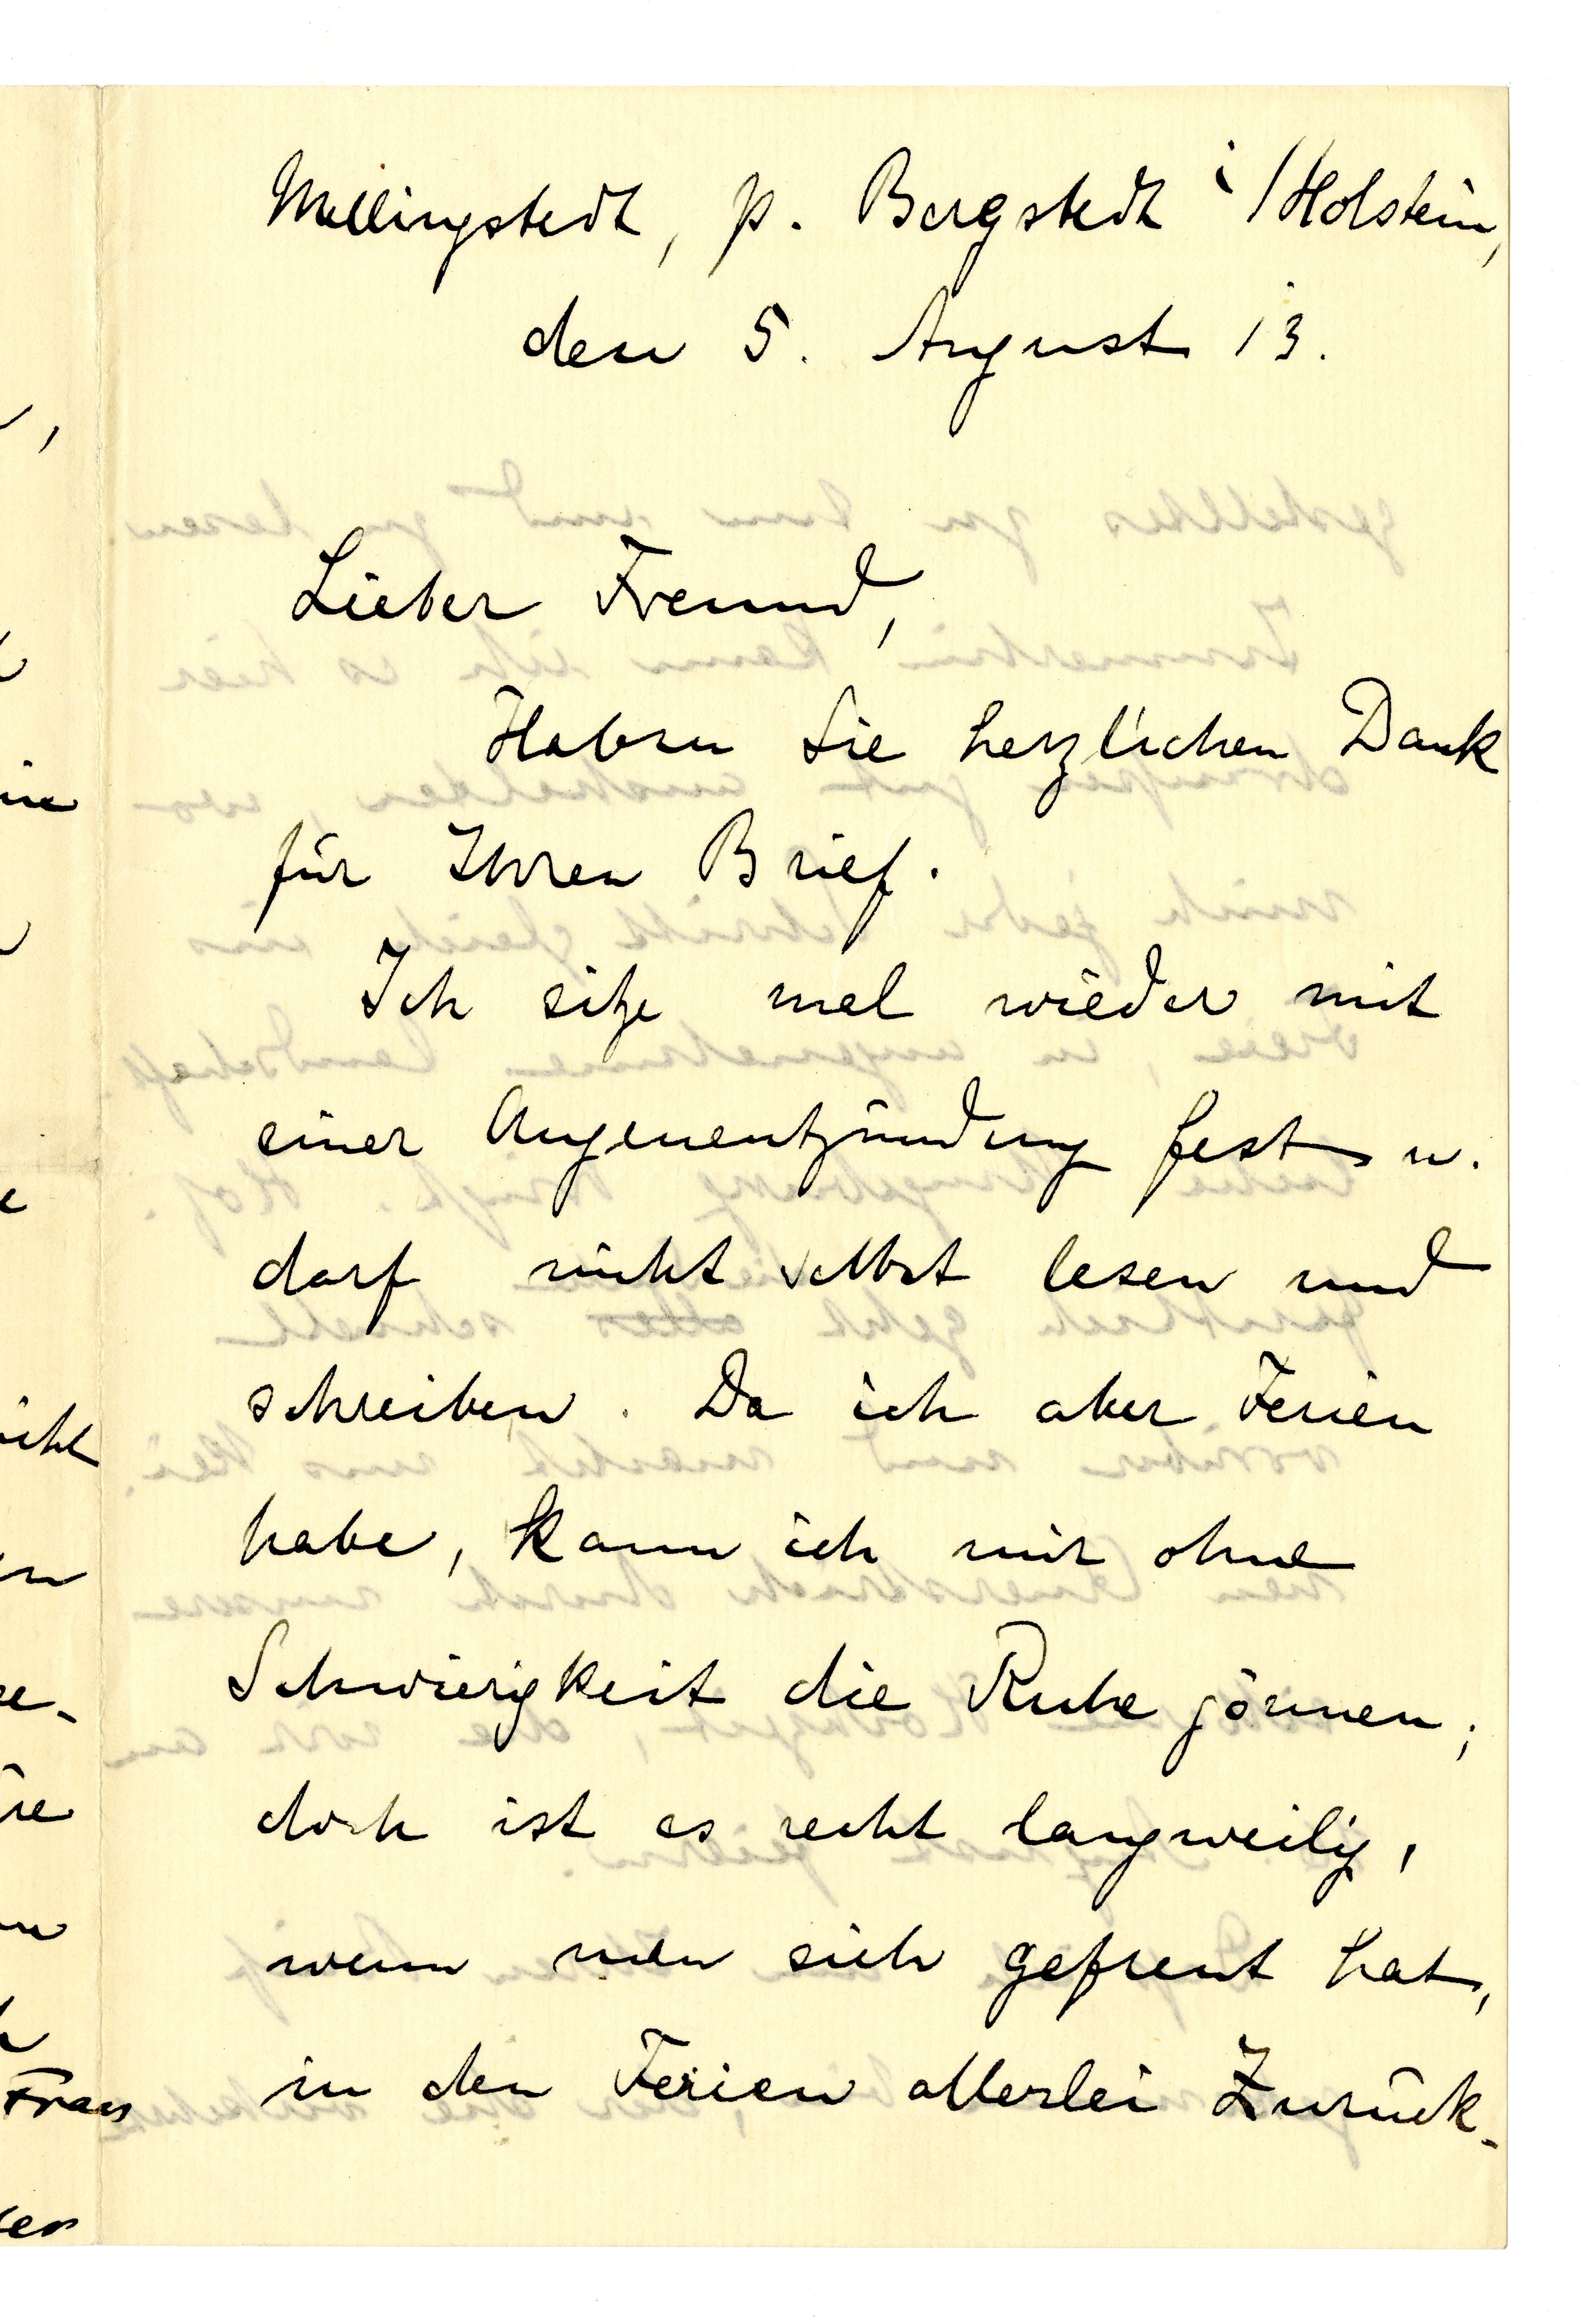 Mellingstedt, p. Bergstedt i/Holstein,
den 5. August 13.
Lieber Freund,
Haben Sie herzlichen Dank
für Ihren Brief.
Ich sitze mal wieder mit
einer Augenentzündung fest u.
darf nicht selbst lesen und
schreiben. Da ich aber Ferien
habe, kann ich mir ohne
Schwierigkeit die Ruhe gönnen;
doch ist es recht langweilig,
wenn man sich gefreut hat,
in den Ferien allerlei Zurück-